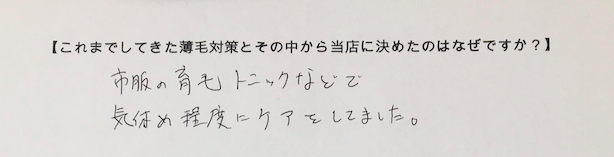 【これまでしてきた薄毛対策とその中から当店に決めたのはなぜですか？】
市販の育毛トニックなどで
気休め程度にケアをしてました。